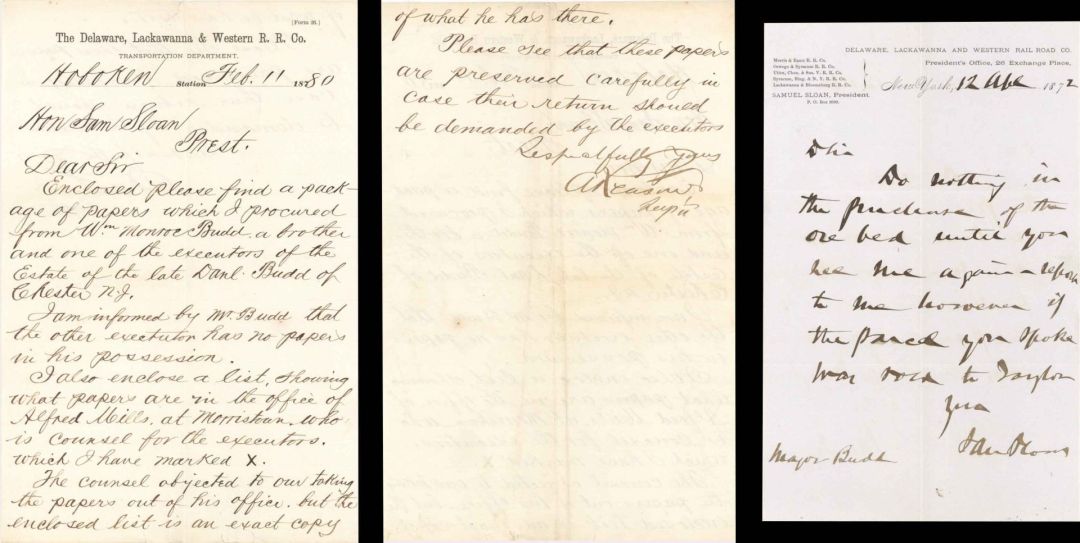 [Form 26.]
The Delaware, Lackawanna & Western R. R. Co.
TRANSPORTATION DEPARTMENT.
Hoboken Station Feb. 11 1880
Hon Sam Sloan
Prest.
Dear Sir
Enclosed please find a pack-
age of papers which I procured
from Wm Monroe Budd a brother
and one of the executors of the
Estate of the late Danl. Budd of
Chester N.J.
I am informed by Mr. Budd that
the other executor has no papers
in his possession.
I also enclose a list, showing
what papers are in the office of
Alfred Mills, at Morristown, who
is counsel for the executors.
which I have marked X.
The counsel objected to our taking
the papers out of his office, but the
enclosed list is an exact copy
of what he has there.
Please see that these papers
are preserved carefully in
case their return should
be demanded by the executors
Respectfully yours
A Reasoner
Supt
DELAWARE, LACKAWANNA AND WESTERN RAIL ROAD CO.
President's Office, 26 Exchange Place,
Morris & Essex R. R. Co.
Oswego & Syracuse R. R. Co.
Utica, Chen. & Sus. V. R. R. Co.
Syracuse, Bing. & N. Y. R. R. Co.
Lackawanna & Bloomsburg R. R. Co.
SAMUEL SLOAN, President.
P. O. Box
New York, 12 Apl 1872
D Sir
Do nothing in
the purchase of the
ore bed until you
see me again - report
to me however if
the parcel you spoke
was sold to Taylor
Yrs
Sam Sloan
Major Budd